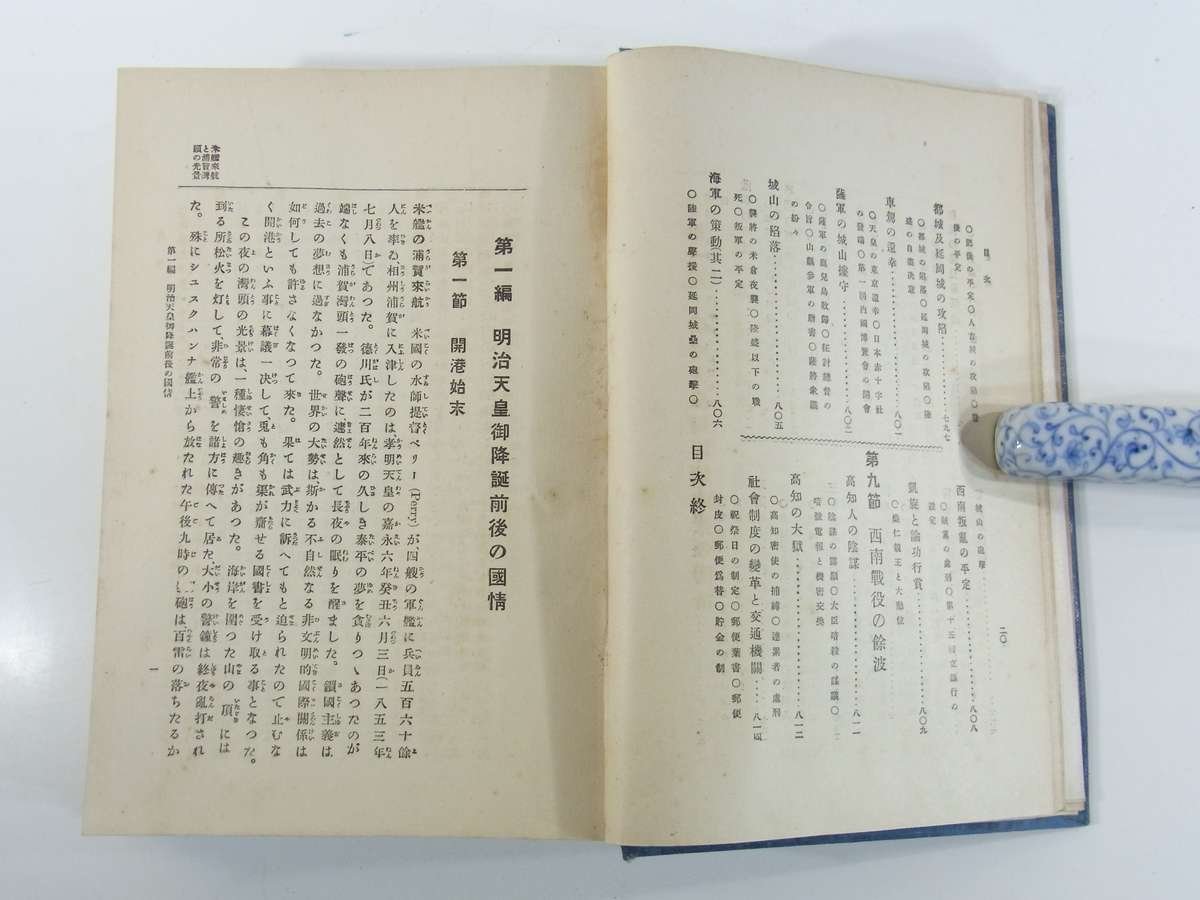 目次
二〇
後の平定
都城及延岡城の攻陷
七九七
〇都城の陷落〇延岡城の攻陷〇隆
盛の自盡決意
車駕の遠幸
八〇一
〇天皇の東京還幸〇日本赤十字社
の發端〇第一回內國博覽會の開會
薩軍の城山據守
八〇三
〇薩軍の鹿兒島敗歸〇征討總督の
令旨〇山縣參軍の贈書〇薩將衆議
の紛々
城山の陷落
八〇五
〇襲將の米倉夜襲〇隆盛以下の戰
死〇叛軍の平定
海軍の策動(其二)
八〇六
〇陸軍の應援〇延岡城桑の砲擊〇
城山の砲擊
西南叛亂の平定
八〇八
〇賊黨の處刑〇第十五國立銀行の
設定
凱旋と論功行賞
八〇九
〇熾仁親王と大勳位
第九節 西南戰役の餘波
高知人の陰謀
八一一
〇大臣暗殺の謀議〇
暗號電報と機密交換
高知の大獄
八一二
〇高知密使の捕縛〇連累者の處刑
社會制度の變革と交通機關
〇祝祭日の制定〇郵便葉書〇郵便
封皮〇郵便爲替〇貯金の制
目次終
第一編 明治天皇御降誕前後の國情
第一節 開港始末
米艦の浦賀來航 米國の水師提督ペリー(Perry)が四艘の軍艦に兵員五百六十餘
人を率ゐ相州浦賀に入津したのは、孝明天皇の嘉永六年癸丑六月三日(一八五三年
七月八日であつた。德川氏が二百年來の久しき泰平の夢を貪りつゝあつたのが
端なくも浦賀灣頭一發の砲聲に遽然として長夜の眠りを醒ました。鎖國主義は
過去の夢想に過なかつた。世界の大勢は斯かる不自然なる非文明的國際關係は
如何しても許さなくなつて來た。果ては武力に訴へてもと迫られたので止むな
く開港といふ事に幕議一決して兎も角も渠が齎せる國書を受け取る事となつた。
この夜の灣頭の光景は、一種悽愴の趣きがあつた。海岸を圍つた山の頂には
到る所松火を灯して非常の警を諸方に傳へて居た。大小の警鐘は終夜亂打され
た。殊にシユスクハンナ艦上から放たれた午後九時の號砲は百雷の落ちたるか
米艦來航
と浦賀灣
頭の光景
第一編 明治天皇御降誕前後の國情
一